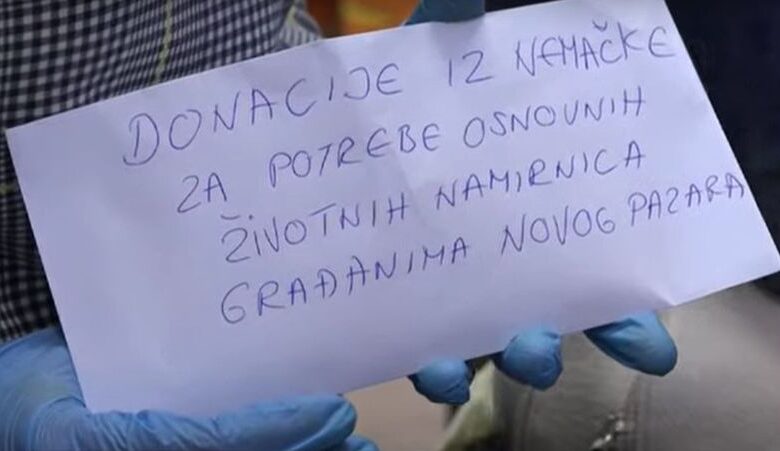 DONACIJE IZ NEMAČKE
ZA POTREBE OSNOVNIH
ŽIVOTNIH NAMIRNICA
GRAĐANIMA NOVOG PAZARA